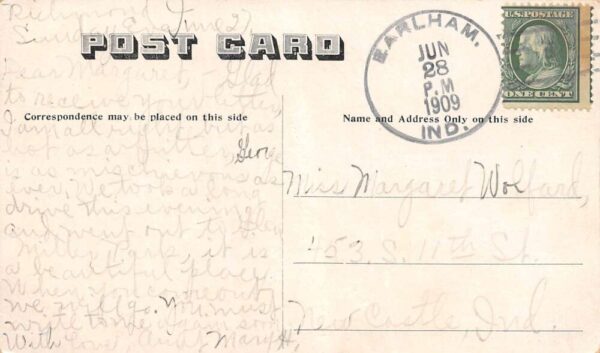 Richmond, June 27
Sunday Eve
POST CARD
EARLHAM.
JUN
28
P.M
1909
IND.
U.S. POSTAGE
ONE CENT
Dear Margaret, - Glad
to receive your letter,
Correspondence may be placed on this side
Name and Address Only on this side
I am all right but as
hot as
is as mischievous as
ever. We took a long
drive this evening
and went out to Glen
Miller Park, it is
a beautiful place.
When you come out
we will go. You must
write to me again soon
With love, Aunt Mary H.
Miss Margaret Wolfard,
453 S. 11th St.
New Castle, Ind.